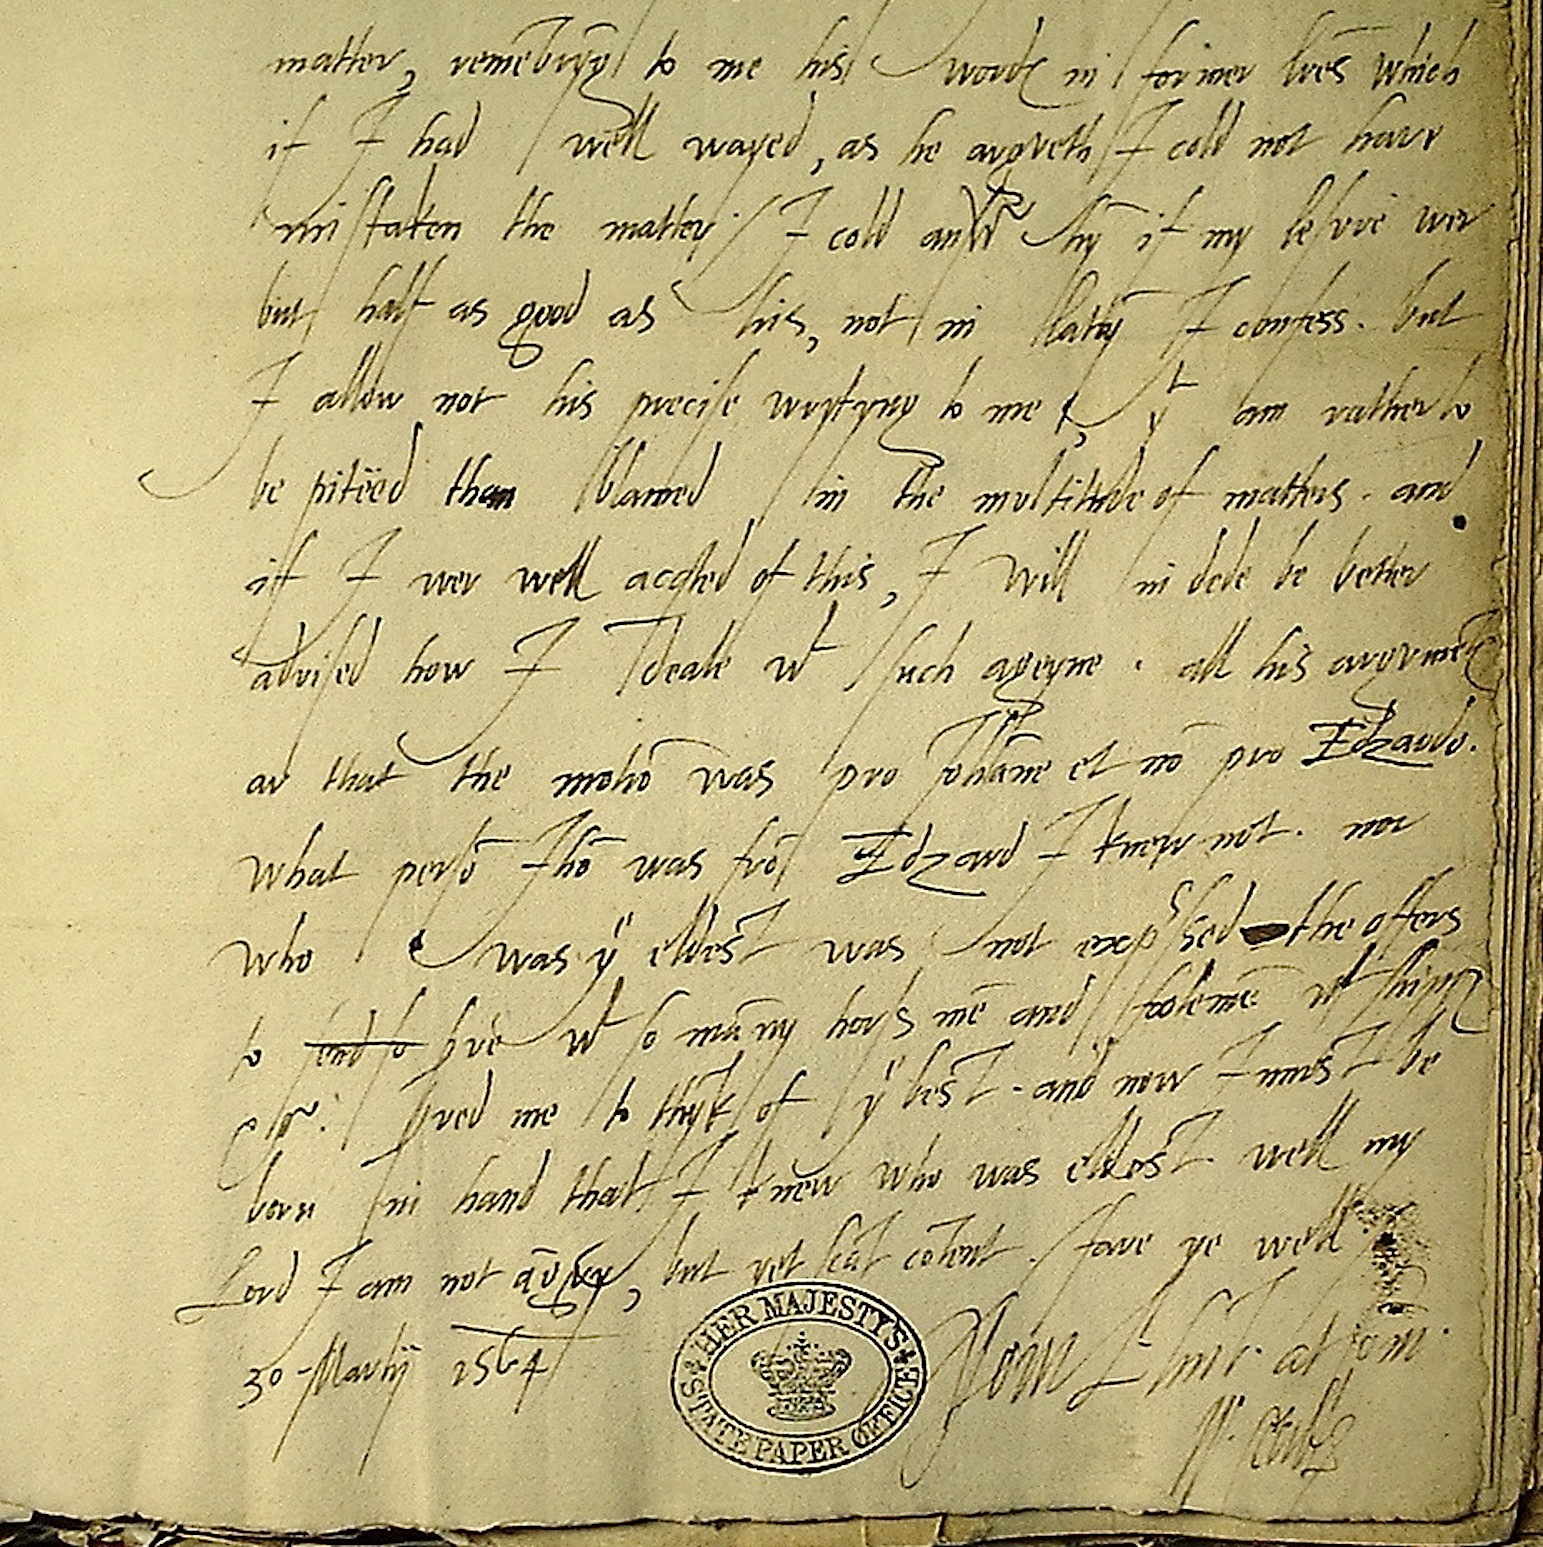 matter, remēbryg to me his wordꝭ in former lrēs which
if I had well wayed, as he argveth I cold not have
mistaken the matter / I cold answr hȳ if my lesure wer
but half as good as his, not in latȳ I confess. but
I allow not his precise wrytyng to me, yt am rather to
be pitëed than blamed in the multitude of matters. and
if I wer well acqted of this, I will in dede be better
advised how I deale wt such ageyne. all his argvmētꝭ
ar that the motiō was pro Johāne et nō pro Edzardo.
what persō Jhō was frō Edzard I knew not. nor
who was ye eldest was not exp^ssed the offers
to send to sve wt so māny hors mē and footemē wt shippꝭ
&c: Moved me to thȳk of ye best. and now I must be
born in hand that I knew who was eldest well my
Lord I am not āgry, but yet scāt cōtent. fare ye well
30 Martij 1564
Your L. at com.
W. Cecill
HER MAJESTY'S
STATE PAPER OFFICE